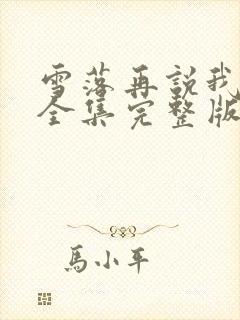 雪落再説我
全集完整版
馬小平